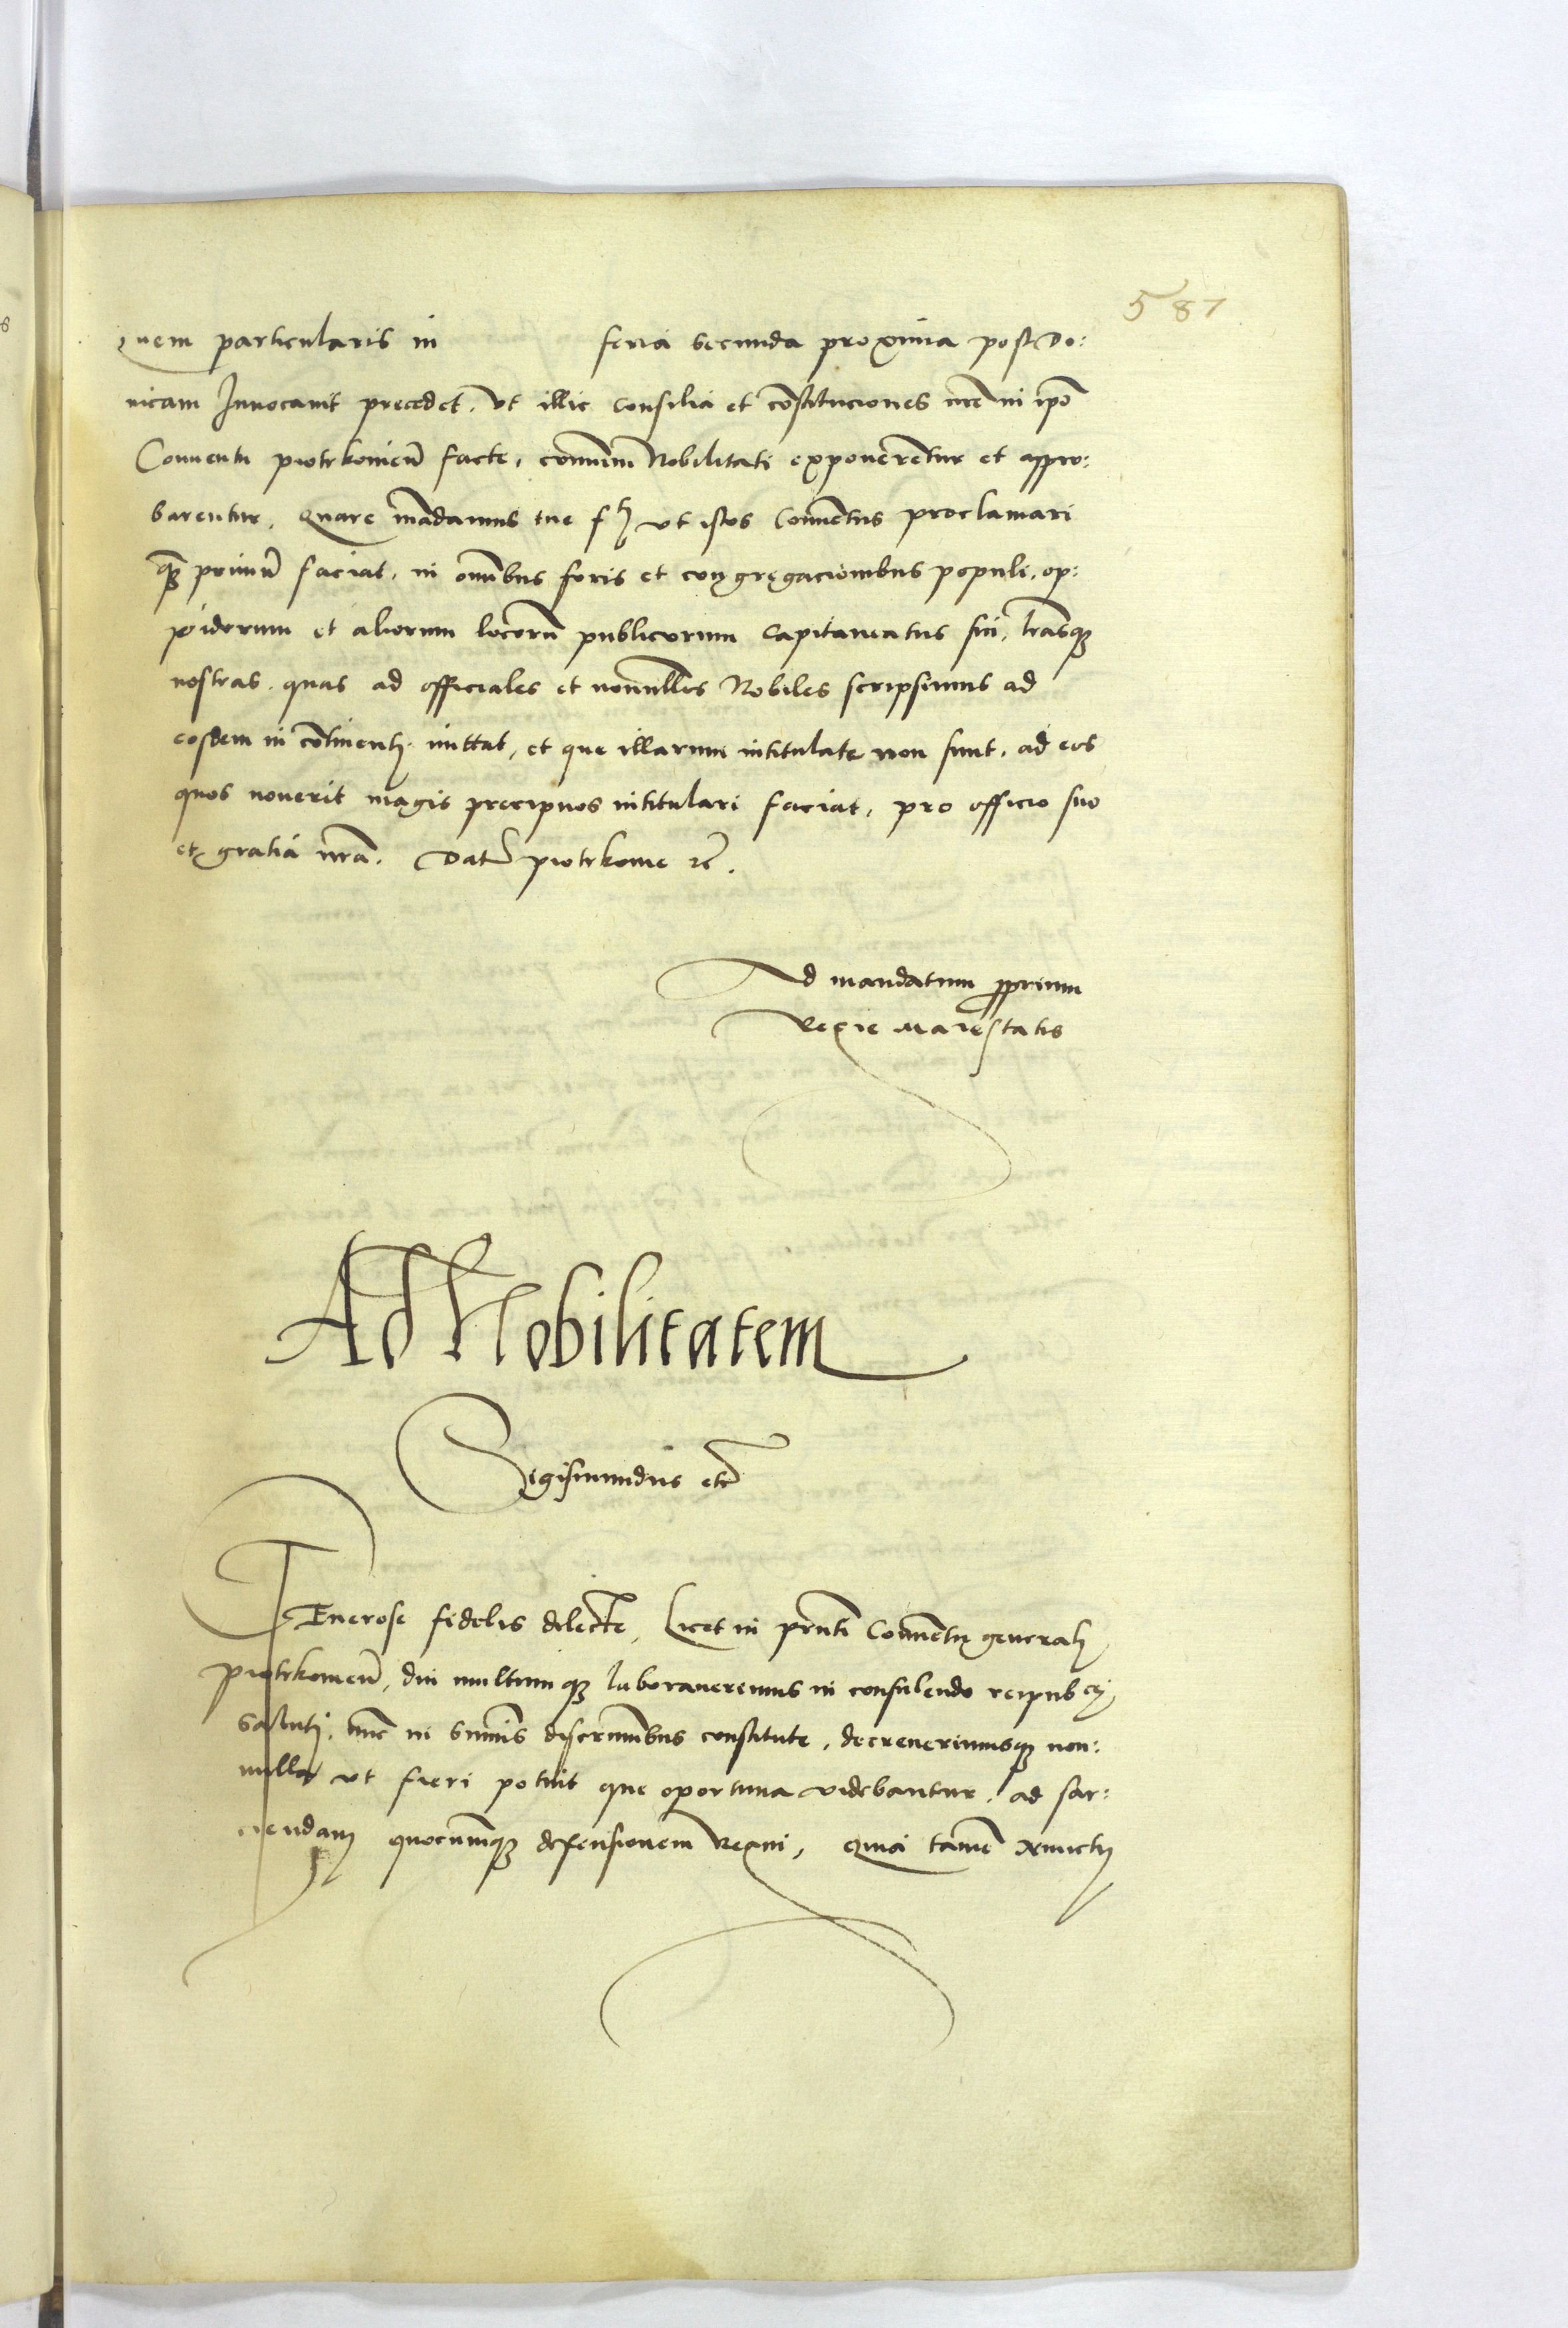 587
quem particularis in feria secunda proxima post Do:
nicam Invocavit precedet, ut illic consilia et cõstituciones nrẽ in ipõ
Conventu piotrkovieñ facte, comuni Nobilitati exponerẽtur et appro:
barentur. Quare mãdamus tue f. ut istos Conventus proclamari
q̃ꝫ primũ faciat, in omibus foris et congregacionibus populi, op:
pidorum et aliorum locorũ publicorum Capitaneatus sui, lrãsqꝫ
nostras, quas ad officiales et nonnullos Nobiles scripsimus ad
eosdem in cõtinenti mittat, et que illarum intitulate non sunt, ad eos
quos noverit magis precipuos intitulari faciat, pro officio suo
et gratia nrã. Datũ piotrkovie ꝛc̃.
Ad mandatum ꝓprium
Regie Maiestatis
Ad Nobilitatem
Sigismundus etc
Generose fidelis dilecte, Licet in pñti Conventu generali
piotrkovieñ, diu multumqꝫ laboraverimus in consulendo reipub
saluti, nũc in sumis discriminibus constitute, decreverimusqꝫ non:
nulla ut fieri potuit que oportuna videbantur, ad sar:
ciendam quocumqꝫ defensionem Regni, Quia tamẽ